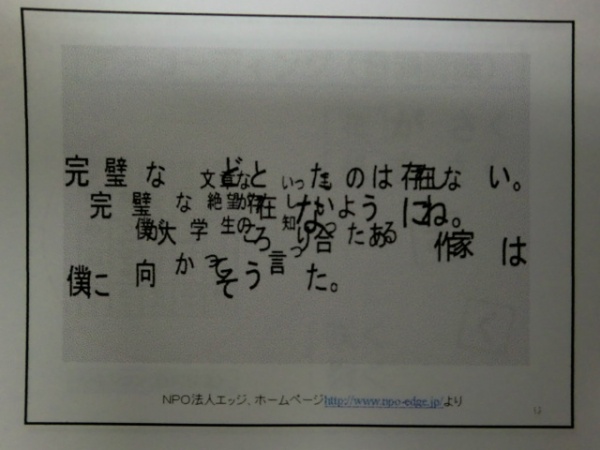 完璧な文章などといったものは存在しない。
完璧な絶望が存在しないようにね。
僕が大学生のころ知り合ったある作家は
僕に向かってそう言った。
NPO法人エッジ、ホームページhttp://www.npo-edge.jp/より